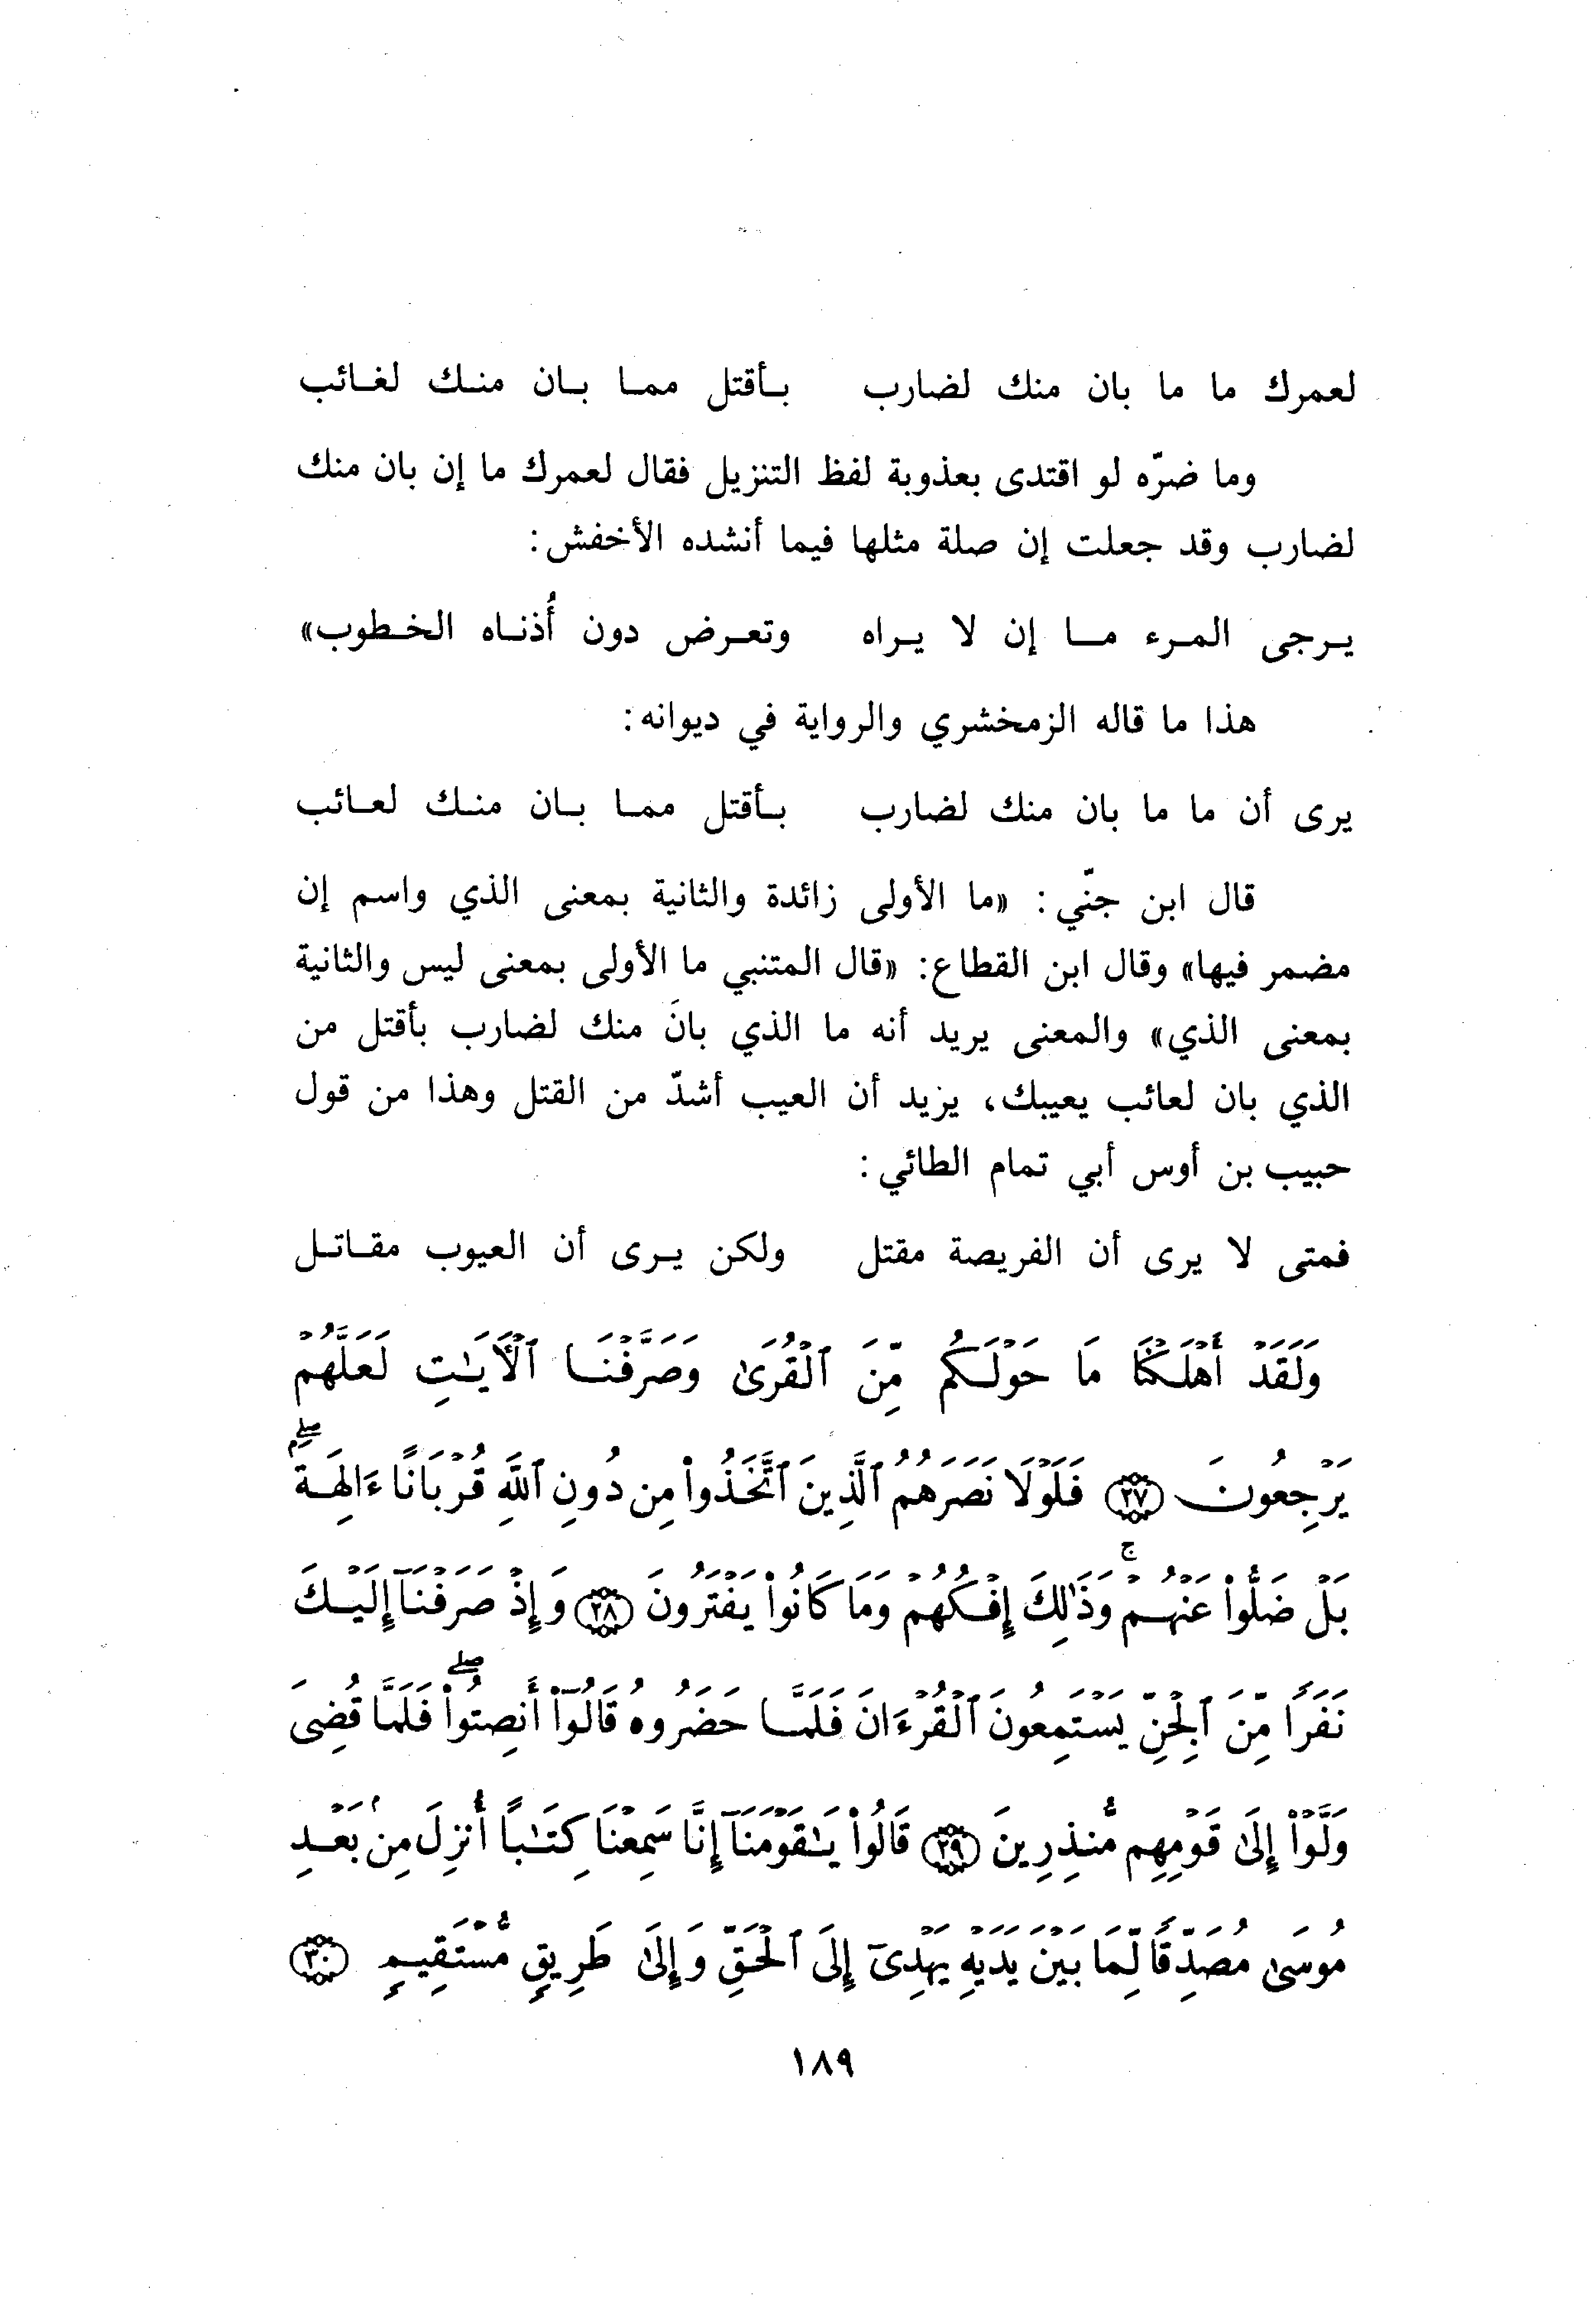 لعمرك ما ما بان منك لضارب بأقتل مما بان منك لغائب
وما ضرّه لو اقتدى بعذوبة لفظ التنزيل فقال لعمرك ما إن بان منك
لضارب وقد جعلت إن صلة مثلها فيما أنشده الأخفش:
يرجى المرء ما إن لا يراه وتعرض دون أُذناه الخطوب»
هذا ما قاله الزمخشري والرواية في ديوانه:
يرى أن ما ما بان منك لضارب بأقتل مما بان منك لعائب
قال ابن جنّي: «ما الأولى زائدة والثانية بمعنى الذي واسم إن
مضمر فيها» وقال ابن القطاع: «قال المتنبي ما الأولى بمعنى ليس والثانية
بمعنى الذي» والمعنى يريد أنه ما الذي بانَ منك لضارب بأقتل من
الذي بان لعائب يعيبك، يزيد أن العيب أشدّ من القتل وهذا من قول
حبيب بن أوس أبي تمام الطائي:
فمتى لا يرى أن الفريصة مقتل ولكن يرى أن العيوب مقاتل
وَلَقَدْ أَهْلَكْنَا مَا حَوْلَكُم مِّنَ ٱلْقُرَىٰ وَصَرَّفْنَا ٱلْأَيَـٰتِ لَعَلَّهُمْ
يَرْجِعُونَ ﴿٢٧﴾ فَلَوْلَا نَصَرَهُمُ ٱلَّذِينَ ٱتَّخَذُوا۟ مِن دُونِ ٱللَّهِ قُرْبَانًا ءَالِهَةًۢ ۖ
بَلْ ضَلُّوا۟ عَنْهُمْ ۚ وَذَٰلِكَ إِفْكُهُمْ وَمَا كَانُوا۟ يَفْتَرُونَ ﴿٢٨﴾ وَإِذْ صَرَفْنَآ إِلَيْكَ
نَفَرًا مِّنَ ٱلْجِنِّ يَسْتَمِعُونَ ٱلْقُرْءَانَ فَلَمَّا حَضَرُوهُ قَالُوٓا۟ أَنصِتُوا۟ ۖ فَلَمَّا قُضِىَ
وَلَّوْا۟ إِلَىٰ قَوْمِهِم مُّنذِرِينَ ﴿٢٩﴾ قَالُوا۟ يَـٰقَوْمَنَآ إِنَّا سَمِعْنَا كِتَـٰبًا أُنزِلَ مِنۢ بَعْدِ
مُوسَىٰ مُصَدِّقًا لِّمَا بَيْنَ يَدَيْهِ يَهْدِىٓ إِلَى ٱلْحَقِّ وَإِلَىٰ طَرِيقٍ مُّسْتَقِيمٍ ﴿٣٠﴾
١٨٩